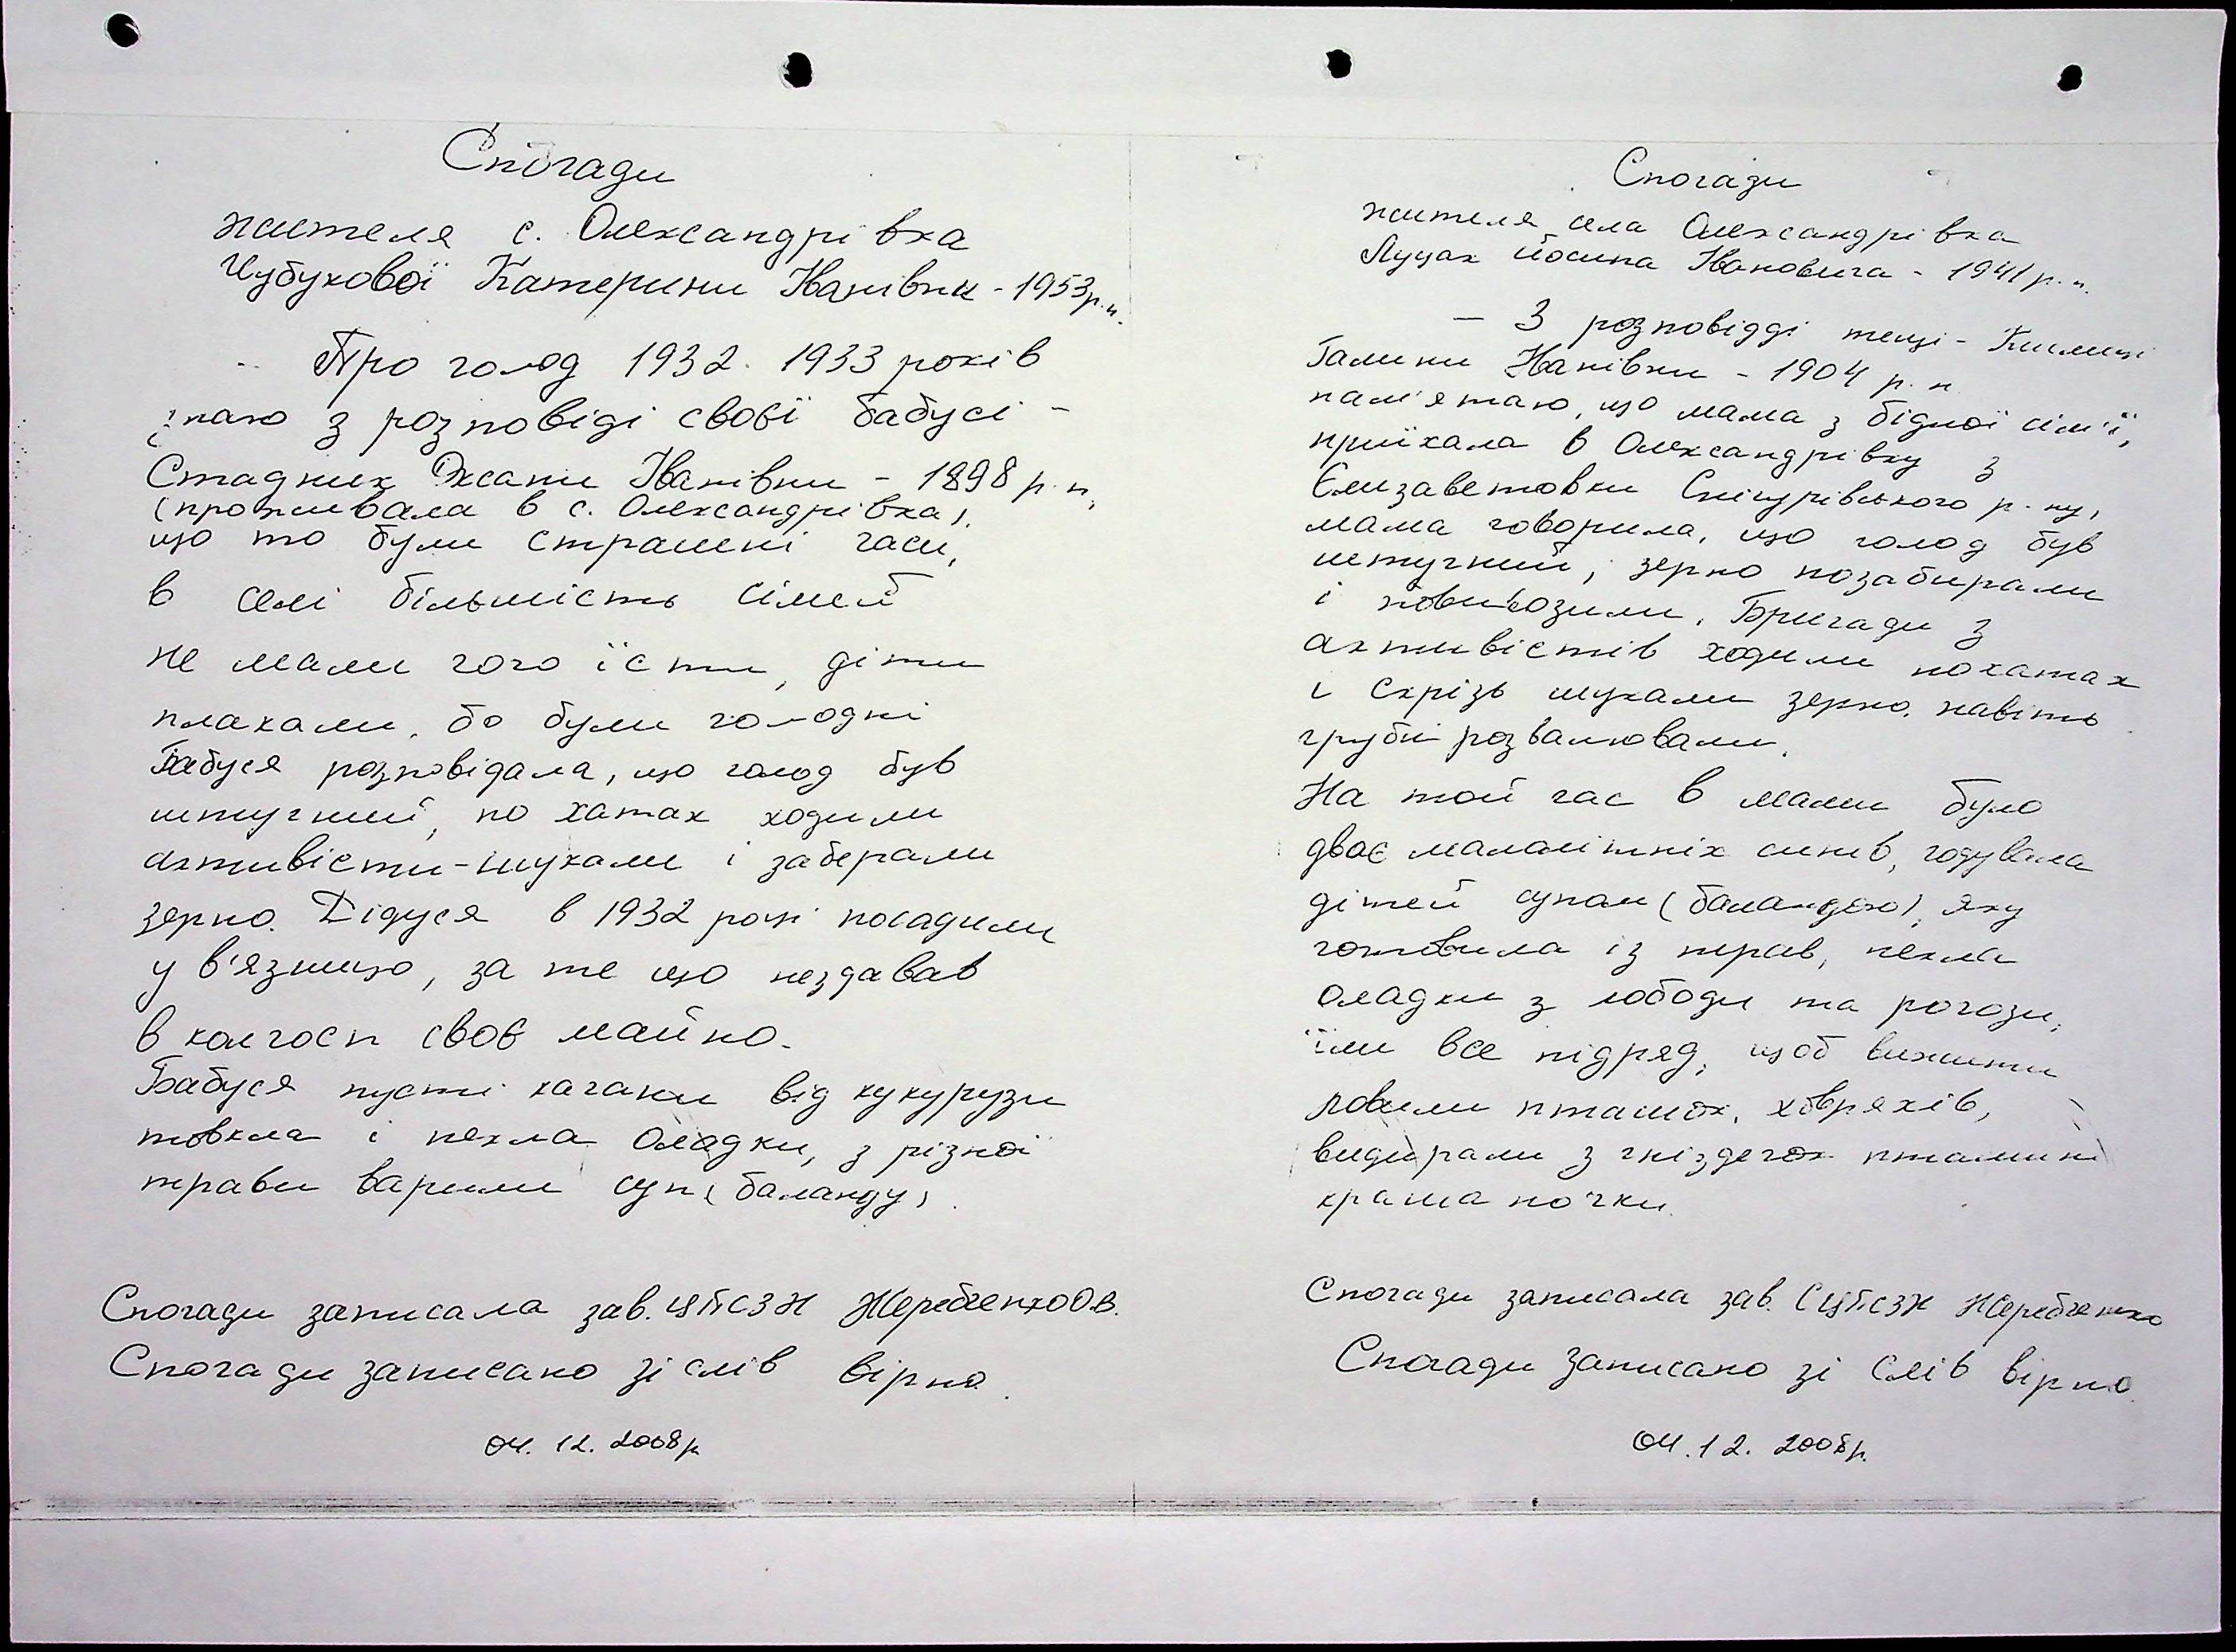 Спогади
жителя с. Олександрівка
Чубукової Катерини Іванівни - 1953р.н.
- Про голод 1932. 1933 років
знаю з розповіді своєї бабусі -
Стадник Оксани Іванівни - 1898 р.н.
(проживала в с. Олександрівка),
що то були страшні часи,
в селі більшість сімей
не мали чого їсти, діти
плакали, бо були голодні
Бабуся розповідала, що голод був
штучний, по хатах ходили
активісти-шукали і заберали
зерно. Дідуся в 1932 році посадили
у в'язницю, за те що нездавав
в колгосп своє майно.
Бабуся пусті качани від кукурузи
товкла і пекла оладки, з різної
трави варили суп (баланду).
Спогади записала зав. ЦПСЗН Жеребченко О.В.
Спогади записано зі слів вірно.
04. 12. 2008р
Спогади
жителя села Олександрівка
Луцак Йосипа Івановича - 1941 р.н.
- З розповідді тещі -
Галини Іванівни - 1904 р.н
пам'ятаю, що мама з бідної сім'ї,
приїхала в Олександрівку з
Єлизаветовки Снігурівського р-ну,
мама говорила, що голод був
штучний, зерно позабирали
і повивозили. Бригади з
активістів ходили по хатах
і скрізь шукали зерно, навіть
груби розвалювали.
На той час в мами було
двоє малолітніх синів, годувала
дітей супом (баландою), яку
готовила із трав, пекла
оладки з лободи та рогози,
їли все підряд, щоб вижити
ловили пташок, ховряхів,
видирали з гніздечок пташині
крашаночки.
Спогади записала зав. СЦПСЗН Жеребченко
Спогади записано зі слів вірно.
04.12. 2008р.